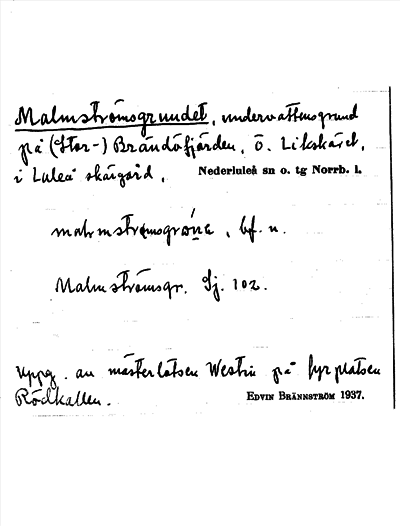 Malmströmsgrundet, undervattensgrund
på (Stor-) Brändöfjärden, Ö. Likskäret,
i Luleå skärgård. Nederluleå sn o. tg Norrb. l.
malmströmsgrȯńa, bf. n.
Malmströmsgr. Sj. 102.
Uppg. av mästerlotsen Westin på fyrplatsen
Rödkallen. EDVIN BRÄNNSTRÖM 1937.